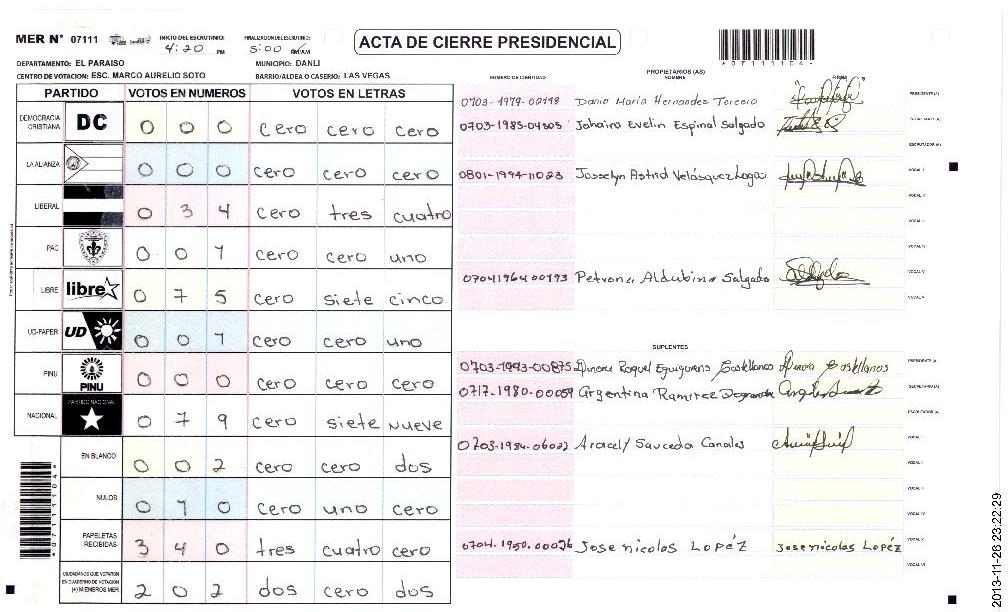 MER N° 07111 INICIO DEL ESCRUTINIO: 4:20 PM FINALIZACION DEL ESCRUTINIO: 5:00 PM/AM ACTA DE CIERRE PRESIDENCIAL
*07111104*
DEPARTAMENTO: EL PARAISO MUNICIPIO: DANLI
CENTRO DE VOTACION: ESC. MARCO AURELIO SOTO BARRIO/ALDEA O CASERIO: LAS VEGAS
PARTIDO VOTOS EN NUMEROS VOTOS EN LETRAS
DEMOCRACIA CRISTIANA DC 0 0 0 cero cero cero
LA ALIANZA 0 0 0 cero cero cero
LIBERAL 0 3 4 cero tres cuatro
PAC 0 0 1 cero cero uno
LIBRE libre 0 7 5 cero siete cinco
UD-FAPER UD 0 0 1 cero cero uno
PINU PINU 0 0 0 cero cero cero
NACIONAL PARTIDO NACIONAL 0 7 9 cero siete nueve
EN BLANCO 0 0 2 cero cero dos
NULOS 0 1 0 cero uno cero
PAPELETAS RECIBIDAS 3 4 0 tres cuatro cero
CIUDADANOS QUE VOTARON EN CUADERNO DE VOTACION (+) MIEMBROS MER 2 0 2 dos cero dos
PROPIETARIOS (AS)
NUMERO DE IDENTIDAD NOMBRE FIRMA
0703-1979-00198 Dania Maria Hernandez Tercero PRESIDENTE (A)
0703-1985-04305 Johaira Evelin Espinal Salgado SECRETARIO (A)
ESCRUTADOR (A)
0801-1994-11023 Josselyn Astrid Velásquez VOCAL I
VOCAL II
VOCAL III
VOCAL IV
0704196400193 Petrona Aldubina Salgado VOCAL V
VOCAL VI
SUPLENTES
0703-1993-00875 Raquel Castellanos Castellanos PRESIDENTE (A)
0717-1980-00059 Argentina Ramirez SECRETARIO (A)
ESCRUTADOR (A)
0703-1984-06022 Aracely Sauceda Canales VOCAL I
VOCAL II
VOCAL III
VOCAL IV
0704-1950-00026 Jose nicolas LOPéZ Jose nicolas LOPéZ VOCAL V
VOCAL VI
2013-11-26 23:22:29